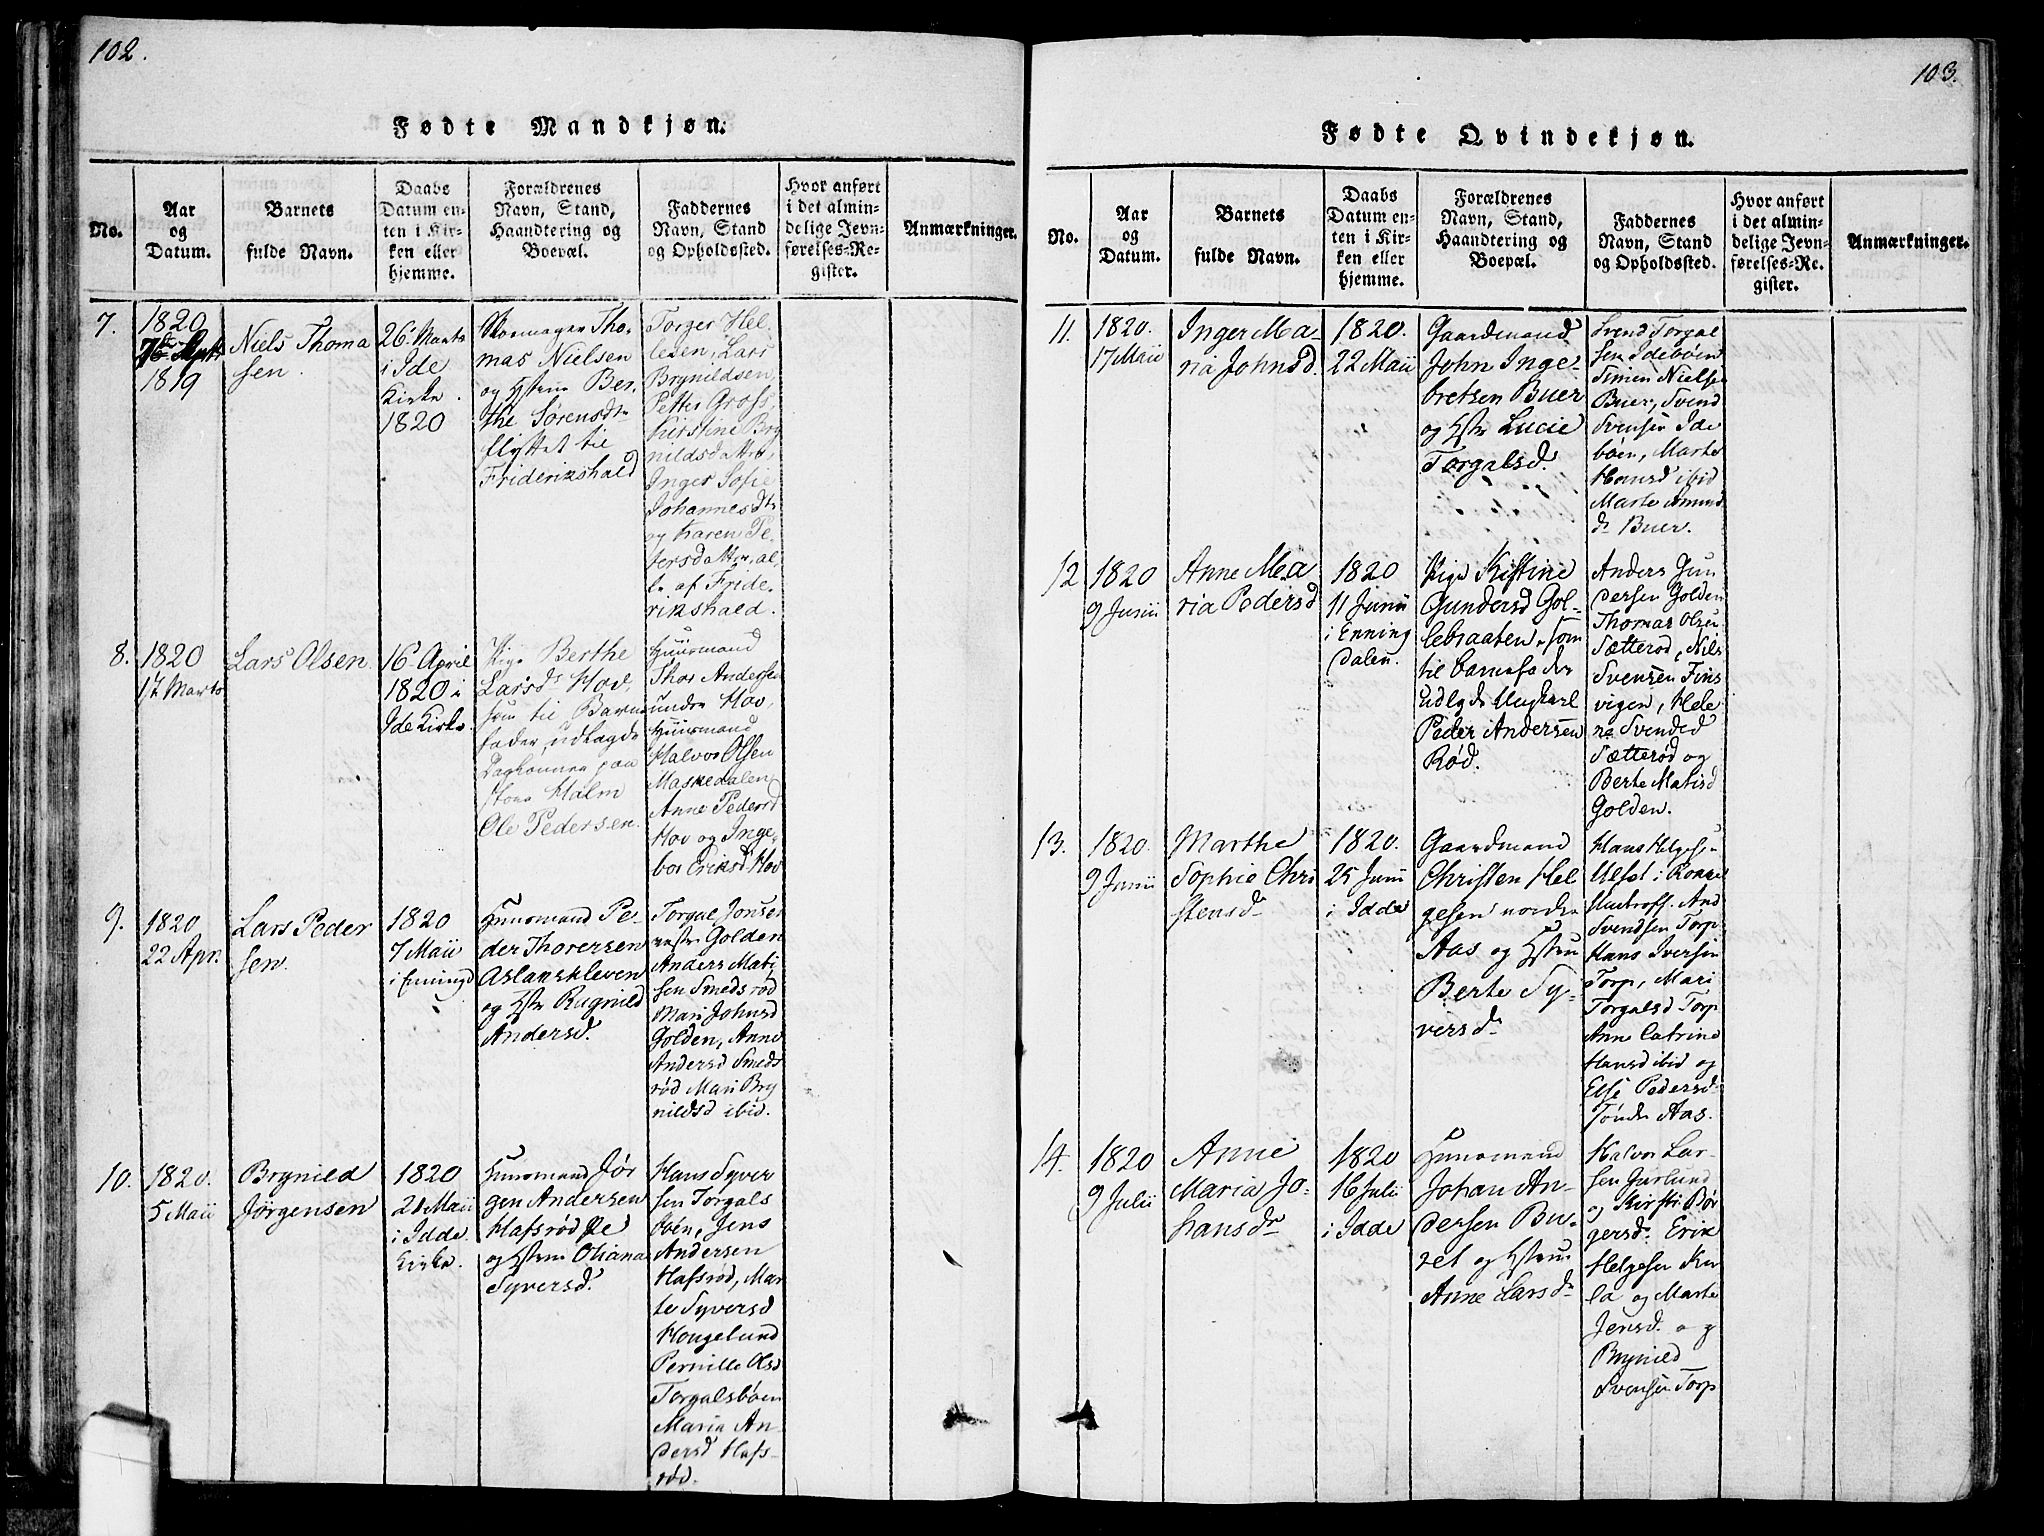 102.
Fødte Mandkjøn.
No.
Aar
og
Datum.
Barnets
fulde Navn.
Daabs
Datum en-
ten i Kir-
ken eller
hjemme.
Forældrenes
Navn, Stand,
Haandtering og
Boepæl.
Faddernes
Navn, Stand
og Opholdssted.
Hvor anført
i det almin-
delige Jevn-
førelses-Re-
gister.
Anmærkninger.
7.
1820
7de Septr
1819
Niels Thoma
sen
26 Marts
i Ide
Kirke.
1820
Skomager Tho-
mas Nielsen
og Hstru Ber-
the Sørensdtr
flyttet til
Friderikshald
Torger Hel-
lesen, Lars
Brynildsen,
Petter Gross,
Kirstine Bry
nildsdatter,
Inger Sofie
Johannesdtr
og Karen Pe-
tersdatter, al-
le af Fride-
rikshald.
8.
1820
17 Marts
Lars Olsen
16 April
1820 i
Ide Kirke
Pige Berthe
Larsd Hov,
som til Barne
fader udlagde
paa
Holm
Ole Pedersen.
Huusmand
Thor Andersen
under Hov,
Huusmand
Halvor Olsen
Maskedalen
Anne Pedersd
Hov og Inge-
bor Eriksd Hov
9.
1820
22 Apr.
Lars Peder
sen
1820
7 Maii
i Enningd
Huusmand Pe-
der Thoresen
Aslakskleven
og Hstr Ragnild
Andersd.
Torgal Jonsen
Golden
Anders Mati
sen Smedsrød
Mari Johnsd
Golden, Anne
Andersd Smeds
rød Mari Bry
nildsd ibid.
10.
1820.
5 Maii
Brynild
Jørgensen
1820
21 Maii
i Idde
Kirke.
Huusmand Jør
gen Andersen
Hafsrød Eie
og Hstru Oliana
Syversd.
Hans Syver
sen Torgals
bøen, Jens
Andersen
Hafsrød, Mar
te Syversd
Hougelund
Pernille Olsd
Torgalsbøen
Maria An-
dersd Hafs-
rød.
103.
Fødte Qvindekjøn.
No.
Aar
og
Datum.
Barnets
fulde Navn.
Daabs
Datum en-
ten i Kir-
ken eller
hjemme.
Forældrenes
Navn, Stand,
Haandtering og
Boepæl.
Faddernes
Navn, Stand
og Opholdssted.
Hvor anført
i det almin-
delige Jevn-
førelses-Re-
gister.
Anmærkninger.
11.
1820.
17 Maii
Inger Ma-
ria Johnsd.
1820.
22 Maii
Gaardmand
John Inge-
bretsen Buer
og Hstr Lucie
Torgalsd.
Svend Torgal
sen Idebøen
Simen Nielsen
Buer, Svend
Svensen Ide
bøen, Marte
Hansd ibid
Marte Amund
d. Buer.
12
1820
9 Junii
Anne Ma
ria Pedersd
1820
11 Junii
i Enning
dalen.
Pige Kistine
Gundersd Gol-
lebraaten, som
til Barnefader
udlagde Ungkarl
Peder Andersen
Rød.
Anders Gun
dersen Golden
Thomas Olsen
Sætterød, Nils
Svensen Fins
vigen, Hele
na Svendsd
Sætterød og
Berte Matisd
Golden.
13.
1820.
9 Junii
Marthe
Sophie Chri
stensd.
1820.
25 Junii
i Idde
Gaardmand
Christen Hel
gesen norder
Aas og Hstru
Berte Sy-
versd.
Hans Helgesen
i Rokke
And
Svendsen Torp
Hans Iversen
Torp, Mari
Torgalsd Torp
Anne Catrine
Hansd ibid og
Else Pedersd.
Aas.
14.
1820
9 Julii
Anne
Maria Jo-
hansdr
1820
16 Julii
i Idde
Huusmand
Johan An-
dersen Bu-
ret og Hstru
Anne Larsd.
Halvor Lar-
sen
og Kirsti Bør
gersd. Erik
Helgesen
og Marte
Jensd. og
Brynild
Svensen Torp